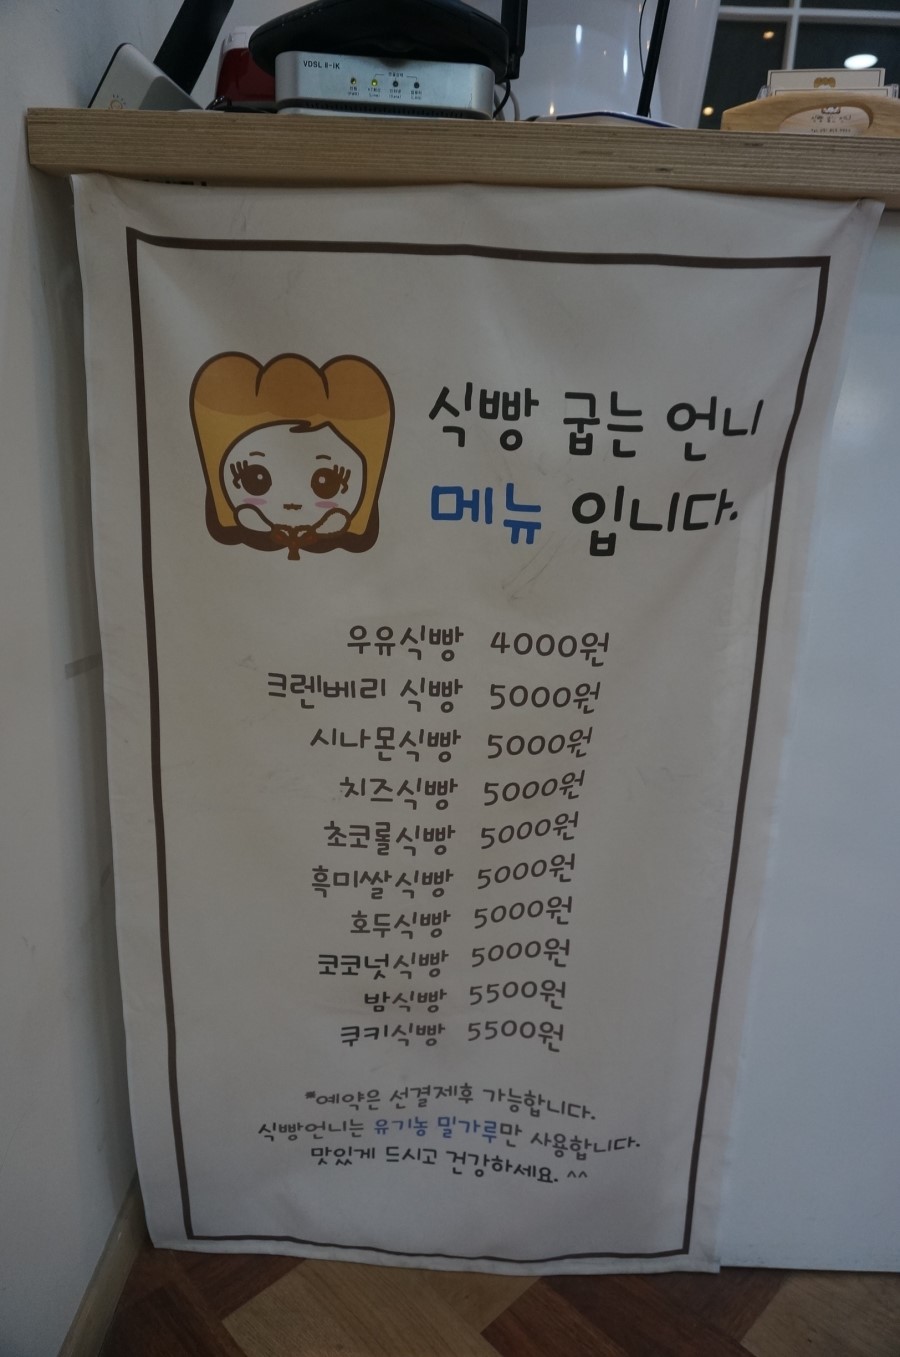 VDSL II-IK
식빵 굽는 언니
메뉴 입니다.
우유식빵 4000원
크렌베리 식빵 5000원
시나몬식빵 5000원
치즈식빵 5000원
초코롤식빵 5000원
흑미쌀식빵 5000원
호두식빵 5000원
코코넛식빵 5000원
밤식빵 5500원
쿠키식빵 5500원
*예약은 선결제후 가능합니다.
식빵언니는 유기농 밀가루만 사용합니다.
맛있게 드시고 건강하세요. ^^